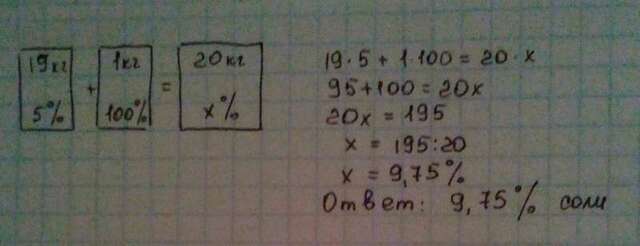 19кг 1кг 20кг
+ =
5% 100% x%
19·5 + 1·100 = 20·x
95+100 = 20x
20x = 195
x = 195:20
x = 9,75%
Ответ: 9,75% соли